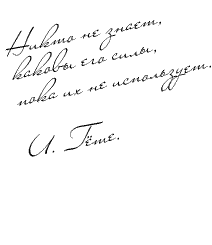 Никто не знает,
каковы его силы,
пока их не использует.
И. Гёте.